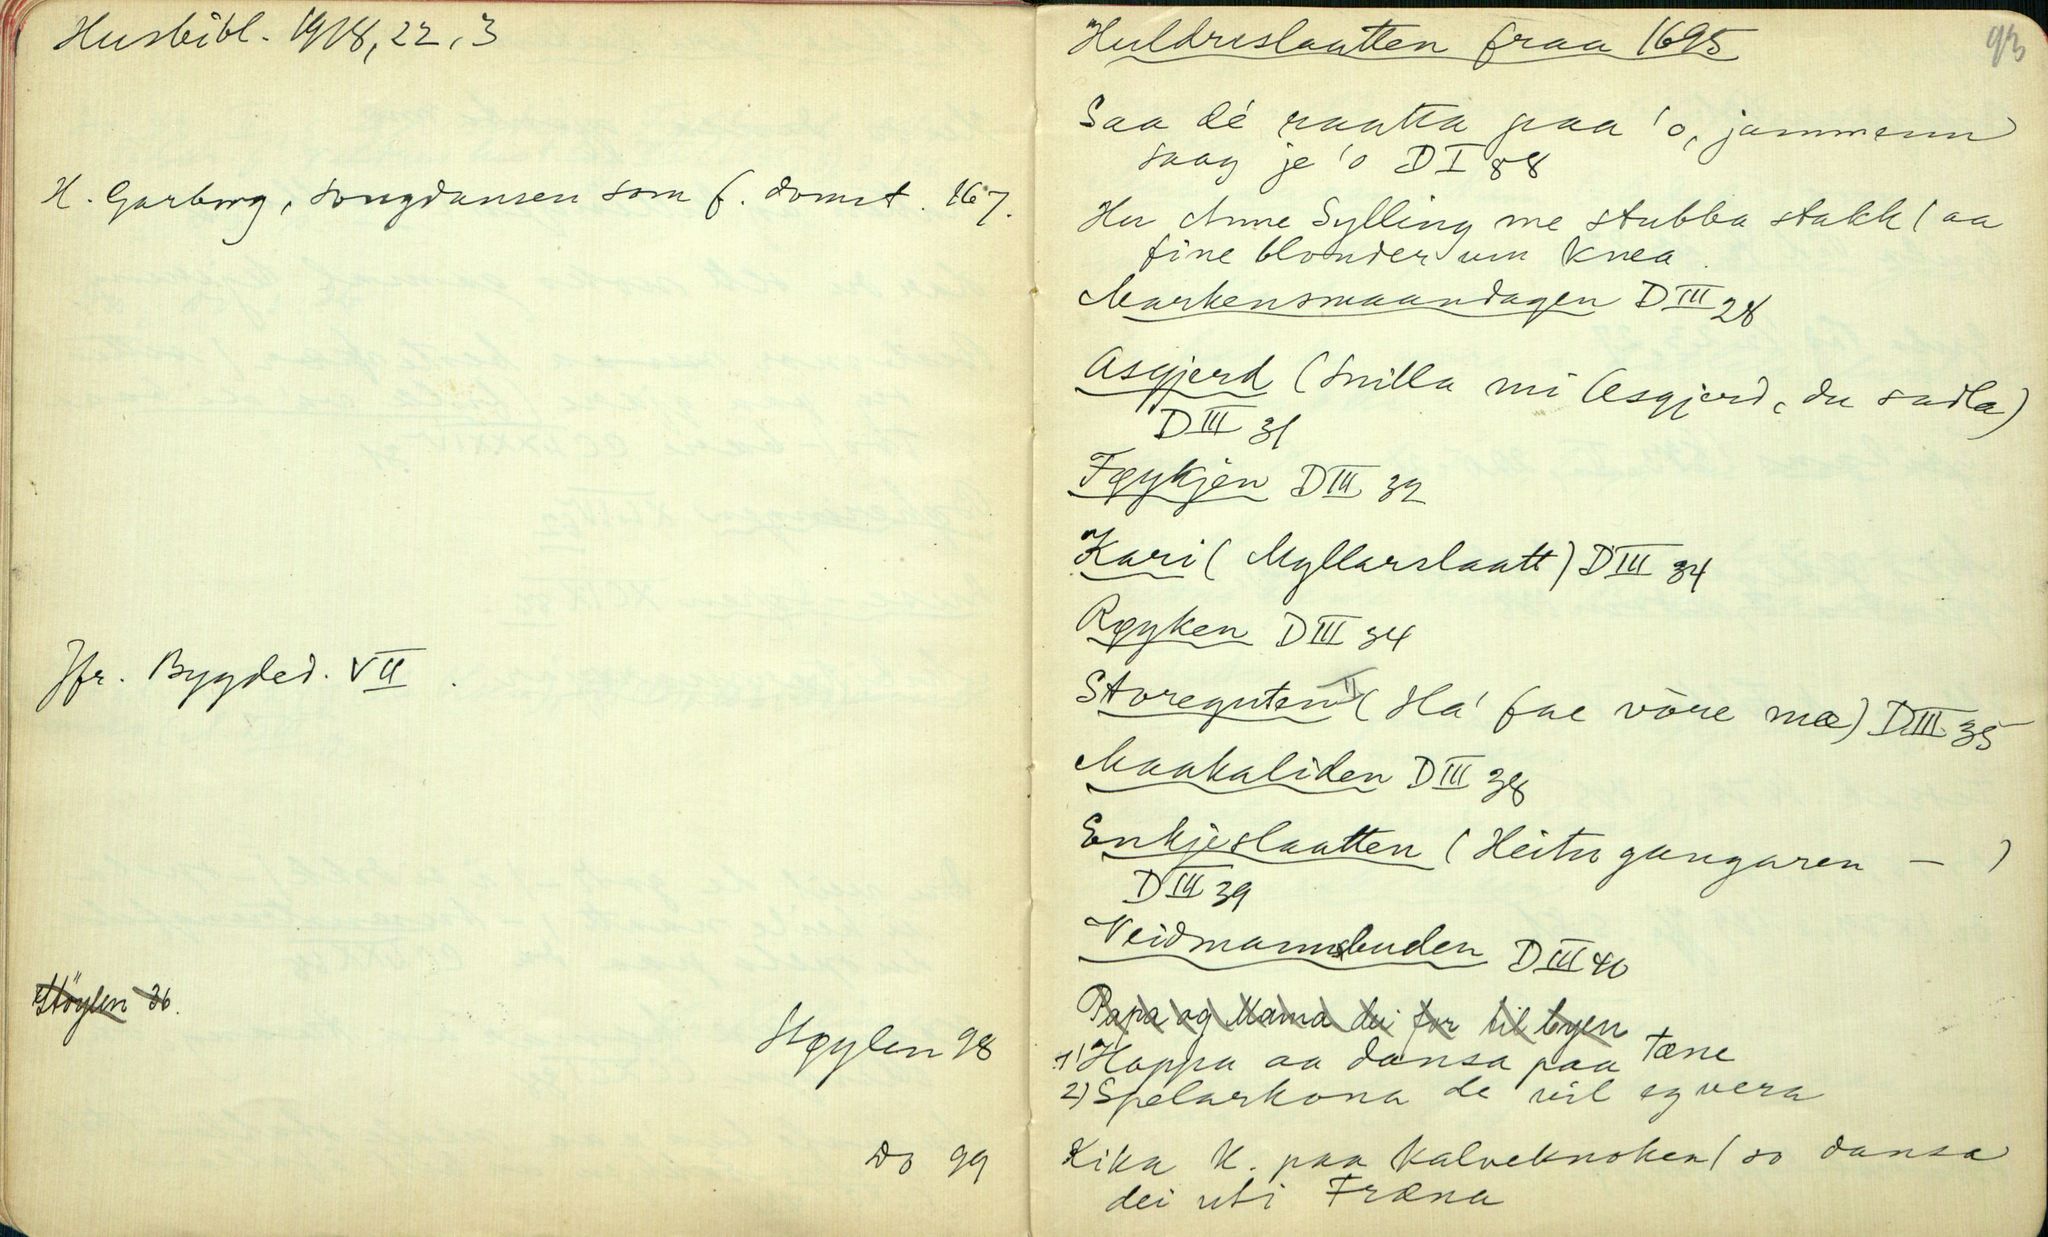 Husbibl. 1918, 22, 3
H. Garborg, songdansen som f. domst. 167.
Jfr. Bygded. VII.
Støylen 36.
Støylen 98
Do 99
93
Huldreslaatten fraa 1695
Saa de raatta paa 'o, jammenn
saag je 'o D I 88
Hu Anne Sylling me stubba stakk / aa
fine blonder um knea
Markensmaandagen D III 28
Asgjerd (Snilla mi Asgjerd, du sadla)
D III 31
Føykjen D III 32
Kari (Myllarslaatt) D III 34
Røyken D III 34
Storeguten II (Ha' fae våre mæ) D III 35
Maakaliden D III 38
Enkjeslaatten (Heitur gangaren - )
D III 39
Veidmannsbuden D III 40
Papa og Mama dei for til byen
1) Hoppa aa dansa paa tæne
2) Spelarkona de vil eg vera
Kika K. paa kalveknoken / so dansa
dei uti Fræna